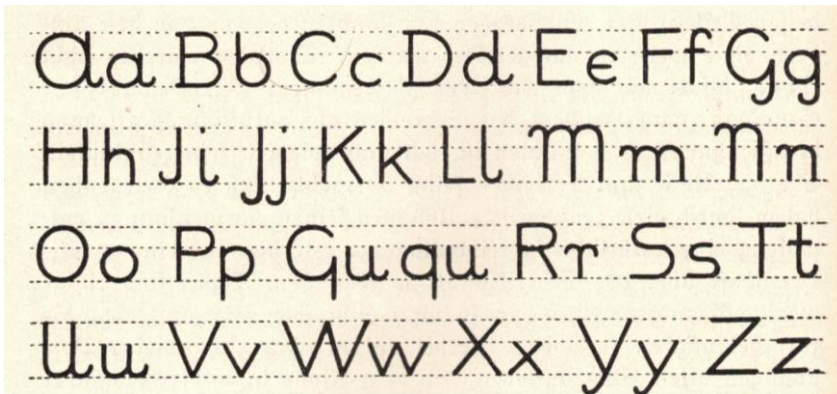 Aa Bb Cc Dd Ee Ff Gg
Hh Ii Jj Kk Ll Mm Nn
Oo Pp Ququ Rr Ss Tt
Uu Vv Ww Xx Yy Zz